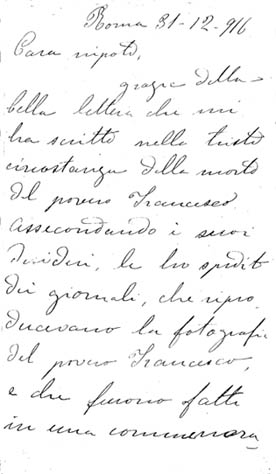 Roma 31-12-916
Cara nipote,
grazie della
bella lettera che mi
ha scritto nella triste
circostanza della morte
del povero Francesco
assecondando i suoi
desideri, le ho spedit
dei giornali, che ripro
ducevano la fotografia
del povero Francesco,
e che furono fatti
in una commemora